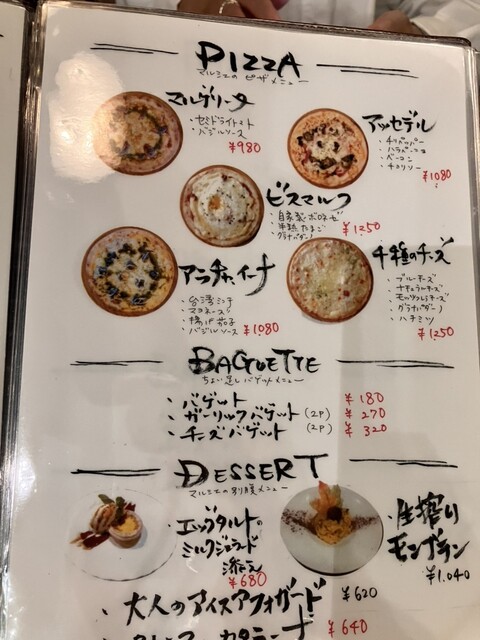 PIZZA
マルシェの ピザメニュー
マルゲリータ
・セミドライトマト
・バジルソース
¥980
アッセデル
・チリペッパー
・ハラペーニョ
・ベーコン
・チョリソー
¥1080
ビスマルク
・自家製ボロネゼ
・半熟たまご
・グラナパダーノ
¥1250
アンチャイーナ
・台湾ミンチ
・マヨネーズ
・揚げ茄子
・バジルソース
¥1080
4種のチーズ
・ブルーチーズ
・ナチュラルチーズ
・モッツァレラチーズ
・グラナパダーノ
・ハチミツ
¥1250
BAGUETTE
ちょい足しバゲットメニュー
・バゲット ¥180
・ガーリックバゲット (2P) ¥270
・チーズバゲット (2P) ¥320
DESSERT
マルシェの別腹メニュー
・エッグタルトの
ミルクジェラード
添え
¥680
・生搾り
モンブラン
¥1,040
・大人のアイスアフォガード ¥620
¥640